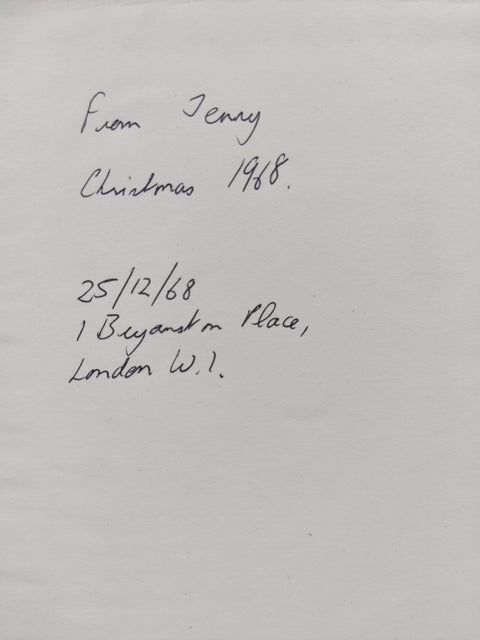 From Jenny
Christmas 1968.
25/12/68
1 Bryanston Place,
London W.1.